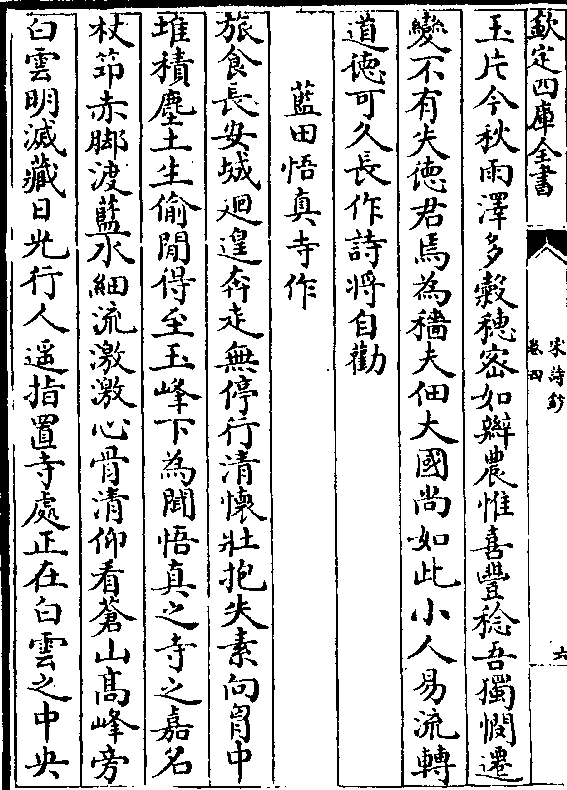 欽定四庫全書
宋詩鈔
卷四
六
玉片今秋雨澤多穀穗密如辮農惟喜豐稔吾獨憫遷
變不有失徳君焉為穡夫佃大國尚如此小人易流轉
道徳可久長作詩將自勸
藍田悟真寺作
旅食長安城迴遑奔走無停行清懷壯抱失素向胷中
堆積塵土生偷閒得至玉峰下為聞悟真之寺之嘉名
杖笻赤脚渡藍水細流激激心骨清仰看蒼山髙峰旁
白雲明滅藏日光行人遥指置寺處正在白雲之中央